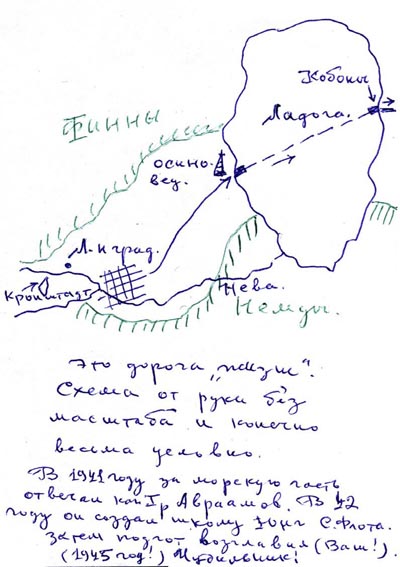 Кобоны
Ладога.
Финны
осино-
вец.
Л-нград.
Кронштадт
Нева.
Немцы.
Это дорога „жизни".
Схема от руки без
масштаба и конечно
весьма условно.
В 1941 году за морскую часть
отвечал кап I р Авраамов. В 42
году он создал школу Юнг С. Флота.
Затем подгот. возглавил (Ваш!).
(1945 год!)